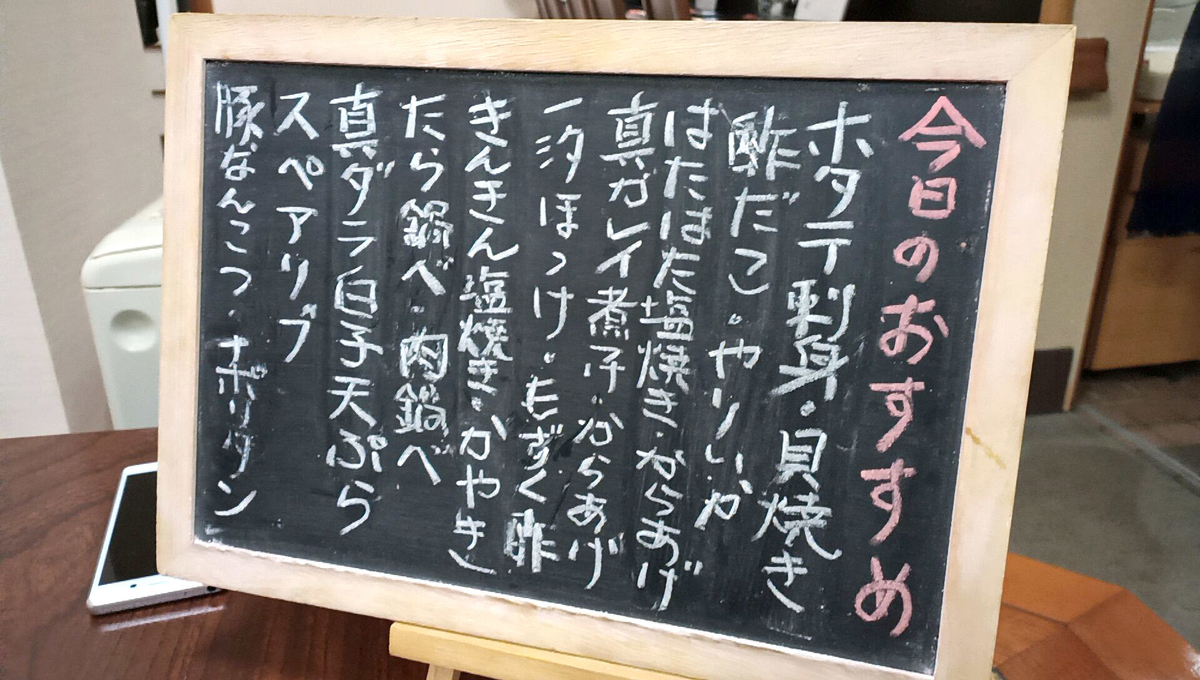 今日のおすすめ
ホタテ刺身・貝焼き
酢だこ・やりいか
はたはた塩焼き・からあげ
真ガレイ煮子・からあげ
一汐ほっけ・もずく酢
きんきん塩焼き・かやき
たら鍋べ・肉鍋べ
真ダラ白子天ぷら
スペアリブ
豚なんこつ・ナポリタン